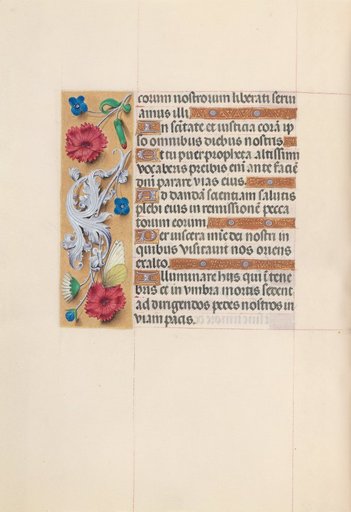 corum nostrorum liberati serui
amus illi
In scītate et iusticia corā ip
so omnibus diebus nostris
Et tu puer propheta altissimi
vocaberis preibis eni ante faciē
dni parare vias eius
Ad dandā scientiam salutis
plebi eius in remissionē pecca
torum eorum
Per viscera mie dei nostri in
quibus visitauit nos oriens
ex alto
Illuminare hiis qui ī tene
bris et in vmbra mortis sedent
ad dirigendos pedes nostros in
viam pacis.